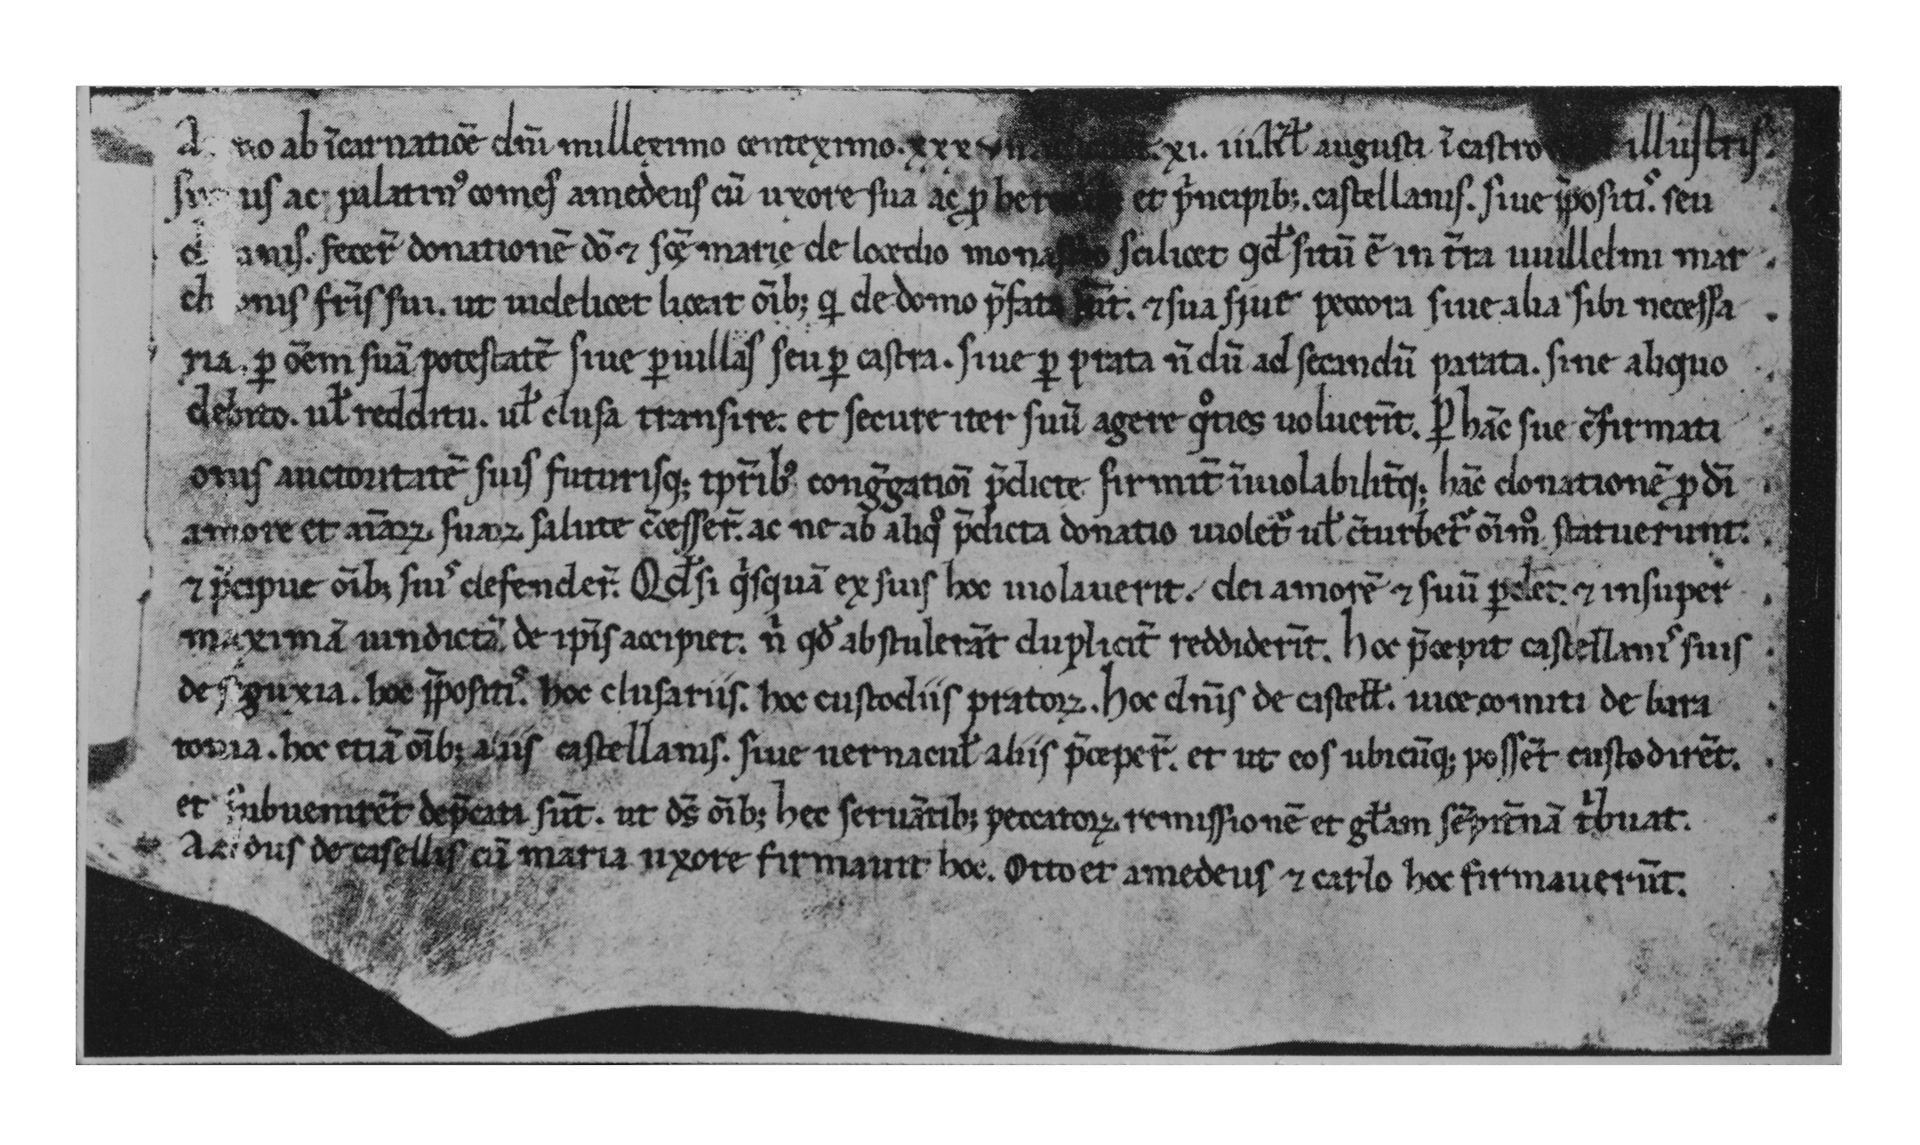 ab īcarnatiōe dn̄i millexımo centexımo. xxx xi. iii. kƚ augusti ī castro illustris.
ac palatin᷒ comes amedeus cū uxore sua ac ꝓ et p̄ncipib; castellanis. siue p̄positis. seu
fecer̄ donationē dō ⁊ scē marie de locedio scilicet qđ sitū ē in t̄ra uuillelmi mar
fr̄is sui. ut uidelicet liceat oīb; qi de domo p̄fata sūt. ⁊ sua siue peccora siue alia sibi necessa
ria. ꝑ oēm suā potestatē siue ꝑ uillas seu ꝑ castra. siue ꝑ prata n̄ dū ad secandū parata. sine aliquo
debito. uƚ redditu. uƚ clusa transire. et secure iter suū agere qͦties uoluerīt. Ꝑ hāc sue c̄firmati
onis auctoritatē suis futurisq; tp̄rib᷒ conḡgatioī p̄dicte firmit̄ īuiolabilit̄q; hāc donationē ꝓ dī
amore et aīaꝝ suaꝝ salute c̄cesser̄. ac ne ab aliqͦ p̄dicta donatio uiolet᷑ uƚ c̄turbet᷑ oīmͦ statuerunt.
⁊ p̄cipue oīb; suis defender̄. Qđ si qisquā ex suis hoc uiolauerit. dei amorē ⁊ suū ꝑdet. ⁊ insuper
maximā uindictā de ip̄is accipiet. n̄ qđ abstulerāt duplicit̄ reddiderīt. hoc p̄cepit castellanis suis
de seguxia. hoc p̄positis. hoc clusariis. hoc custodiis pratoꝝ. hoc dn̄is de casteƚƚ. uicecomiti de bara
tonia. hoc etiā oīb; aliis castellanis. siue uernacuƚ aliis p̄ceper̄. et ut eos ubicūq; possēt custodirēt.
et subuenirēt dep̄cati sūt. ut ds̄ oīb; hec seruātib; peccatoꝝ remissionē et gƚam sēpit̄nā tibuat.
de casellis cū maria uxore firmauit hoc. Otto et amedeus ⁊ carlo hoc firmauerūt.